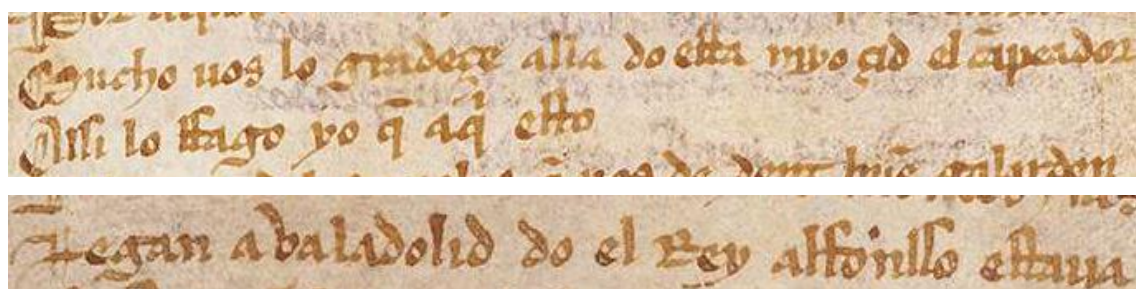 Mucho uos lo gradeçe alla do esta myo çid el cãpeador
Assi lo ffago yo q̃ aq̃ esto
Legan a baladolid do el Rey alfonsso estaua